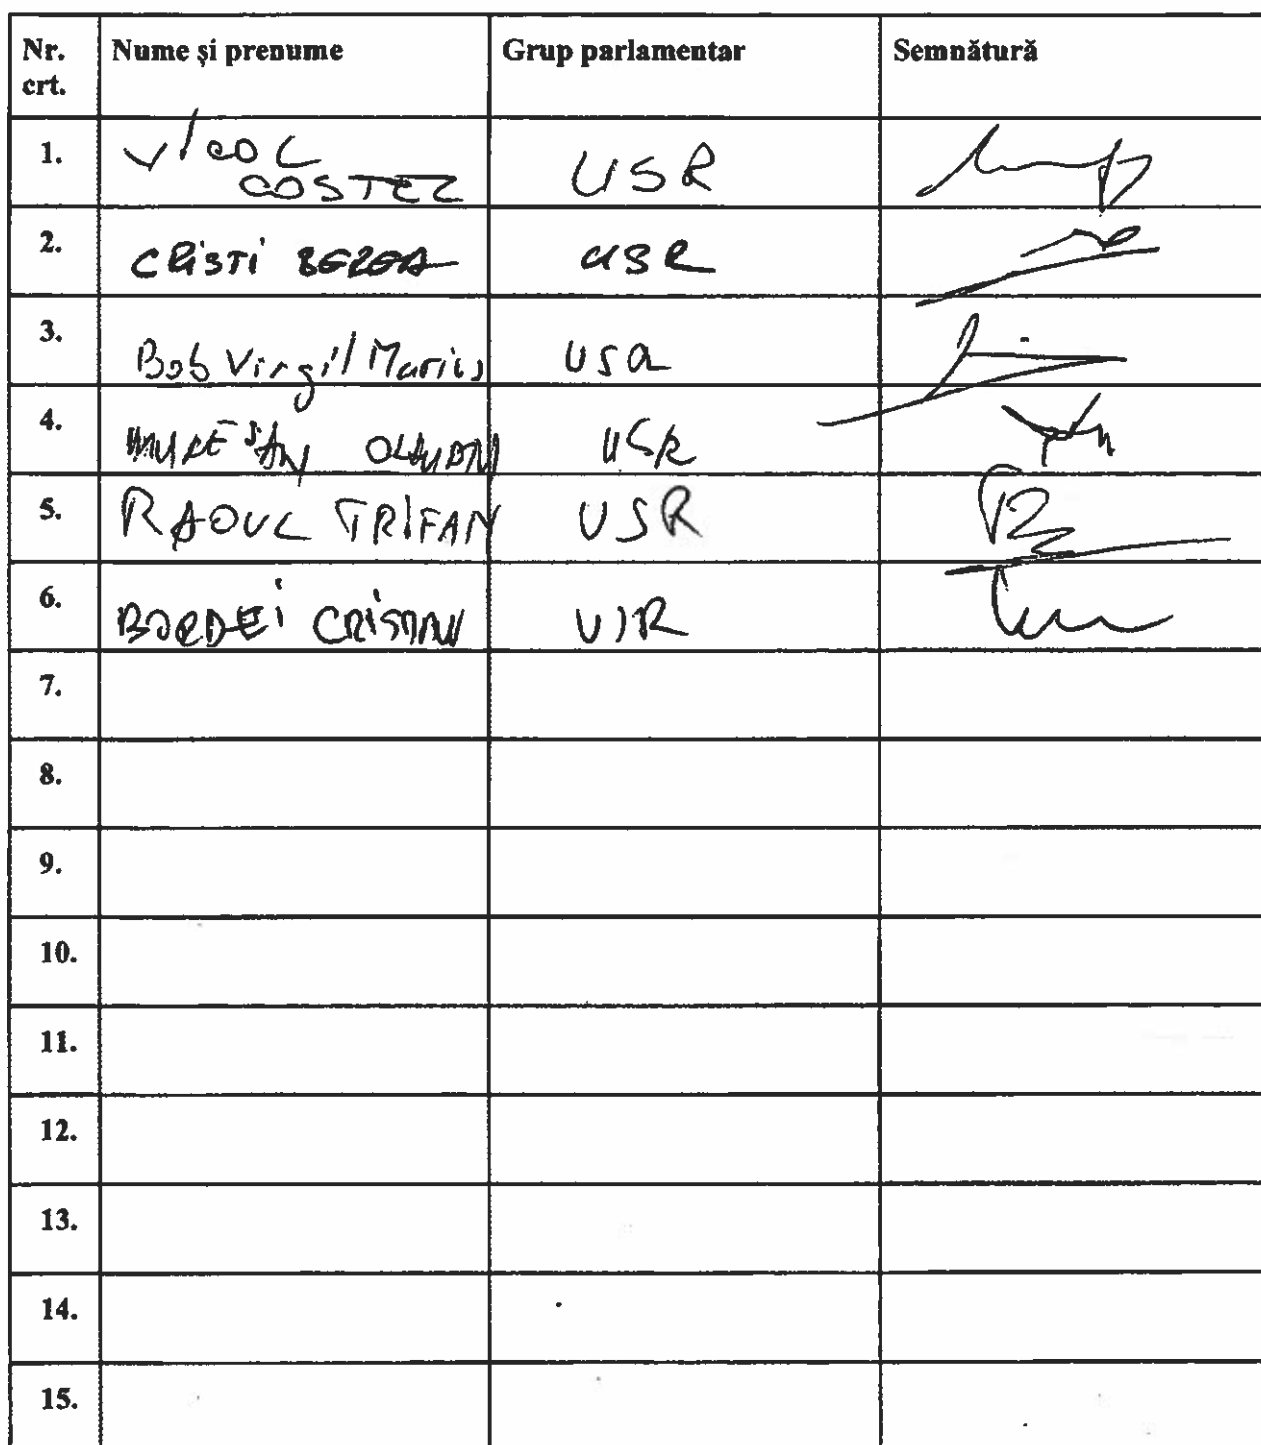 Nr. crt. Nume și prenume Grup parlamentar Semnătură
1. VICOL COSTEL USR
2. CRISTI BEREA USR
3. Bob Virgil Marius USR
4. MUREȘAN USR
5. RAOUL TRIFAN USR
6. BORDEI CRISTIAN USR
7.
8.
9.
10.
11.
12.
13.
14.
15.